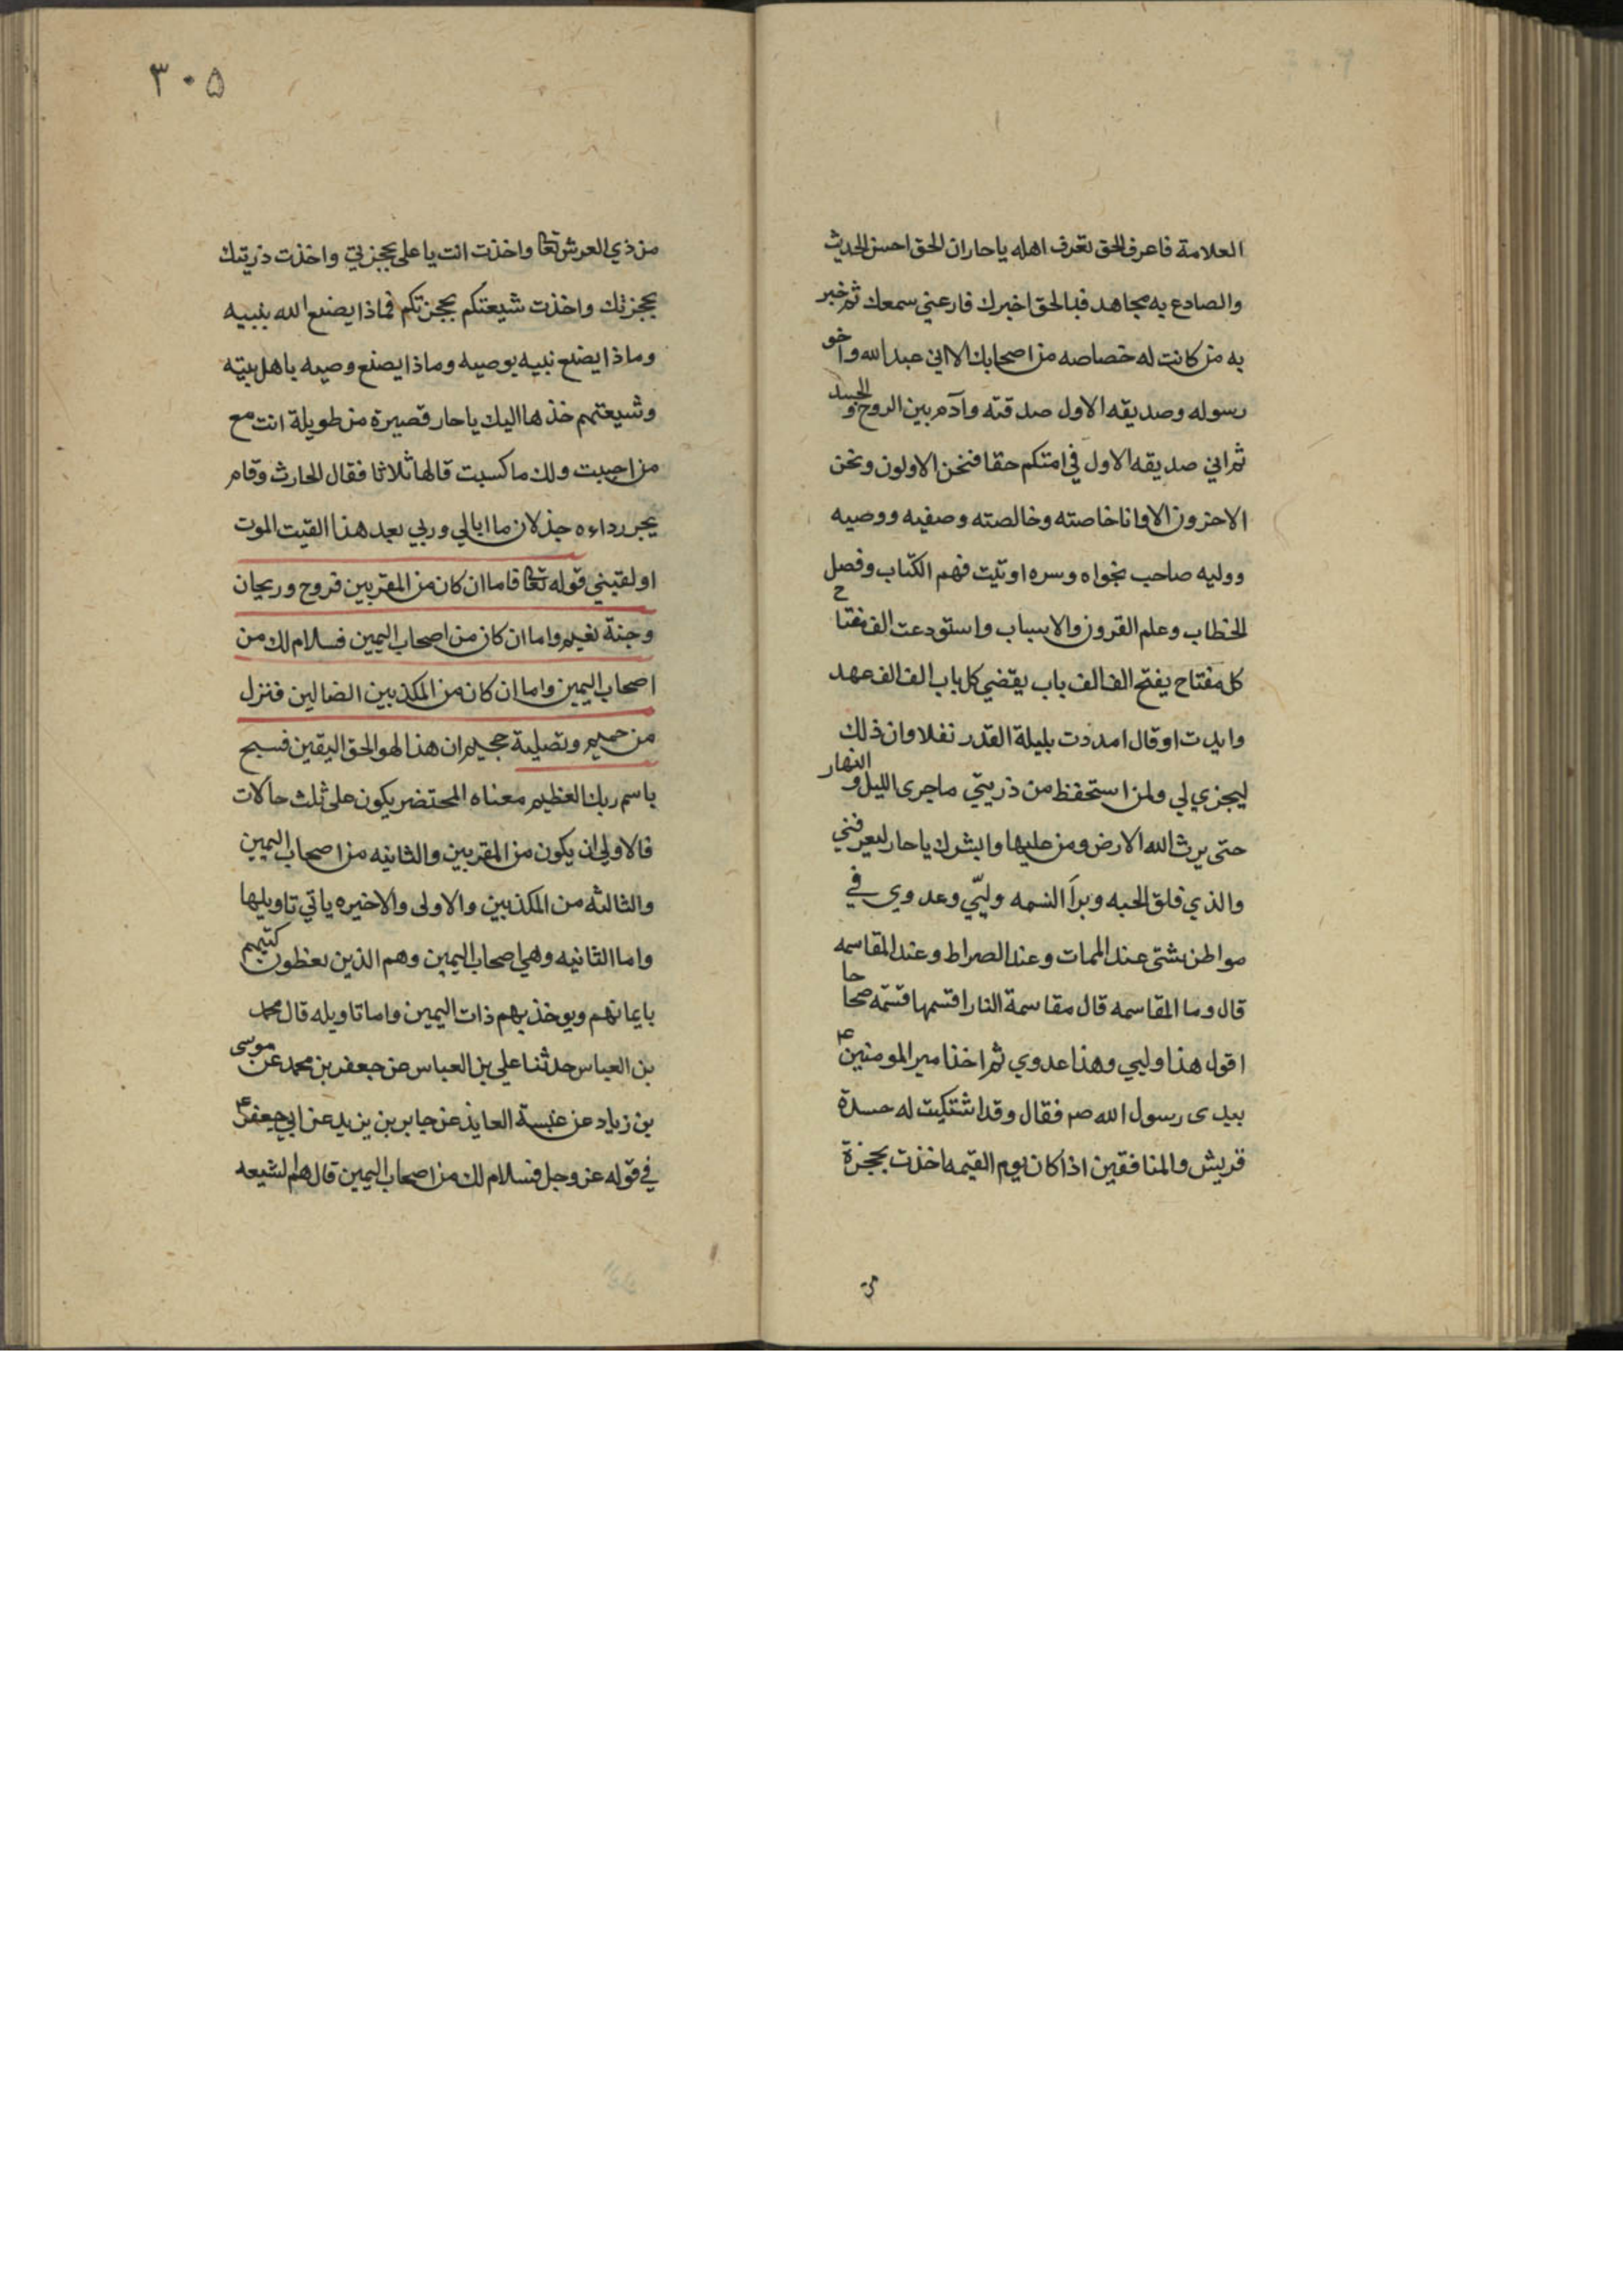 العلامة فاعرف الحق تعرف اهله ياحار ان الحق احسن الحديث
والصادع به مجاهد فبالحق اخبرك فارعني سمعك ثم خبر
به من كانت له خصاصه من اصحابك الا اني عبد الله واخو
رسوله وصديقه الاول صدقته وآدم بين الروح والجسد
ثم اني صديقه الاول في امتكم حقا فنحن الاولون ونحن
الاخرون الا وانا خاصته وخالصته وصفيه ووصيه
ووليه صاحب نجواه وسره اوتيت فهم الكتاب وفصل
الخطاب وعلم القرون والاسباب واستودعت الف مفتاح
كل مفتاح يفتح الف الف باب يقضي كل باب الف الف عهد
وايدت او قال امددت بليلة القدر نفلا وان ذلك
ليجزي لي ولمن استحفظ من ذريتي ماجرى الليل والنهار
حتى يرث الله الارض ومن عليها وابشرك ياحار ليعرفني
والذي فلق الحبه وبرأ النسمه وليّي وعدوي في
مواطن شتى عند الممات وعند الصراط وعند المقاسمه
قال وما المقاسمه قال مقاسمة النار اقسمها قسمه صحاحا
اقول هذا وليي وهذا عدوي ثم اخذ امير المومنين ع
بيدي رسول الله صم فقال وقد اشتكيت له حسدة
قريش والمنافقين اذا كان يوم القيمه اخذت بحجزة
٣٠٥
من ذي العرش تعا واخذت انت ياعلى بحجزتي واخذت ذريتك
بحجزتك واخذت شيعتكم بحجزتكم فماذا يصنع الله بنبيه
وماذا يصنع نبيه بوصيه وماذا يصنع وصيه باهل بيته
وشيعتهم خذها اليك ياحار قصيرة من طويلة انت مع
من احببت ولك ماكسبت قالها ثلاثا فقال الحارث وقام
يجر رداءه جذلان ما ابالي وربي بعد هذا القيت الموت
او لقيني قوله تعا فاما ان كان من المقربين فروح وريحان
وجنة نعيم واما ان كان من اصحاب اليمين فسلام لك من
اصحاب اليمين واما ان كان من المكذبين الضالين فنزل
من حميم وتصلية جحيم ان هذا لهو الحق اليقين فسبح
باسم ربك العظيم معناه المحتضر يكون على ثلث حالات
فالاولى ان يكون من المقربين والثانيه من اصحاب اليمين
والثالثه من المكذبين والاولى والاخيره ياتي تاويلها
واما الثانيه وهي اصحاب اليمين وهم الذين يعطون كتبهم
بايمانهم ويوخذ بهم ذات اليمين واما تاويله قال محمد
بن العباس حدثنا علي بن العباس عن جعفر بن محمد عن موسى
بن زياد عن عنبسة العابد عن جابر بن يزيد عن ابي جعفر ع
في قوله عز وجل فسلام لك من اصحاب اليمين قال هم الشيعه